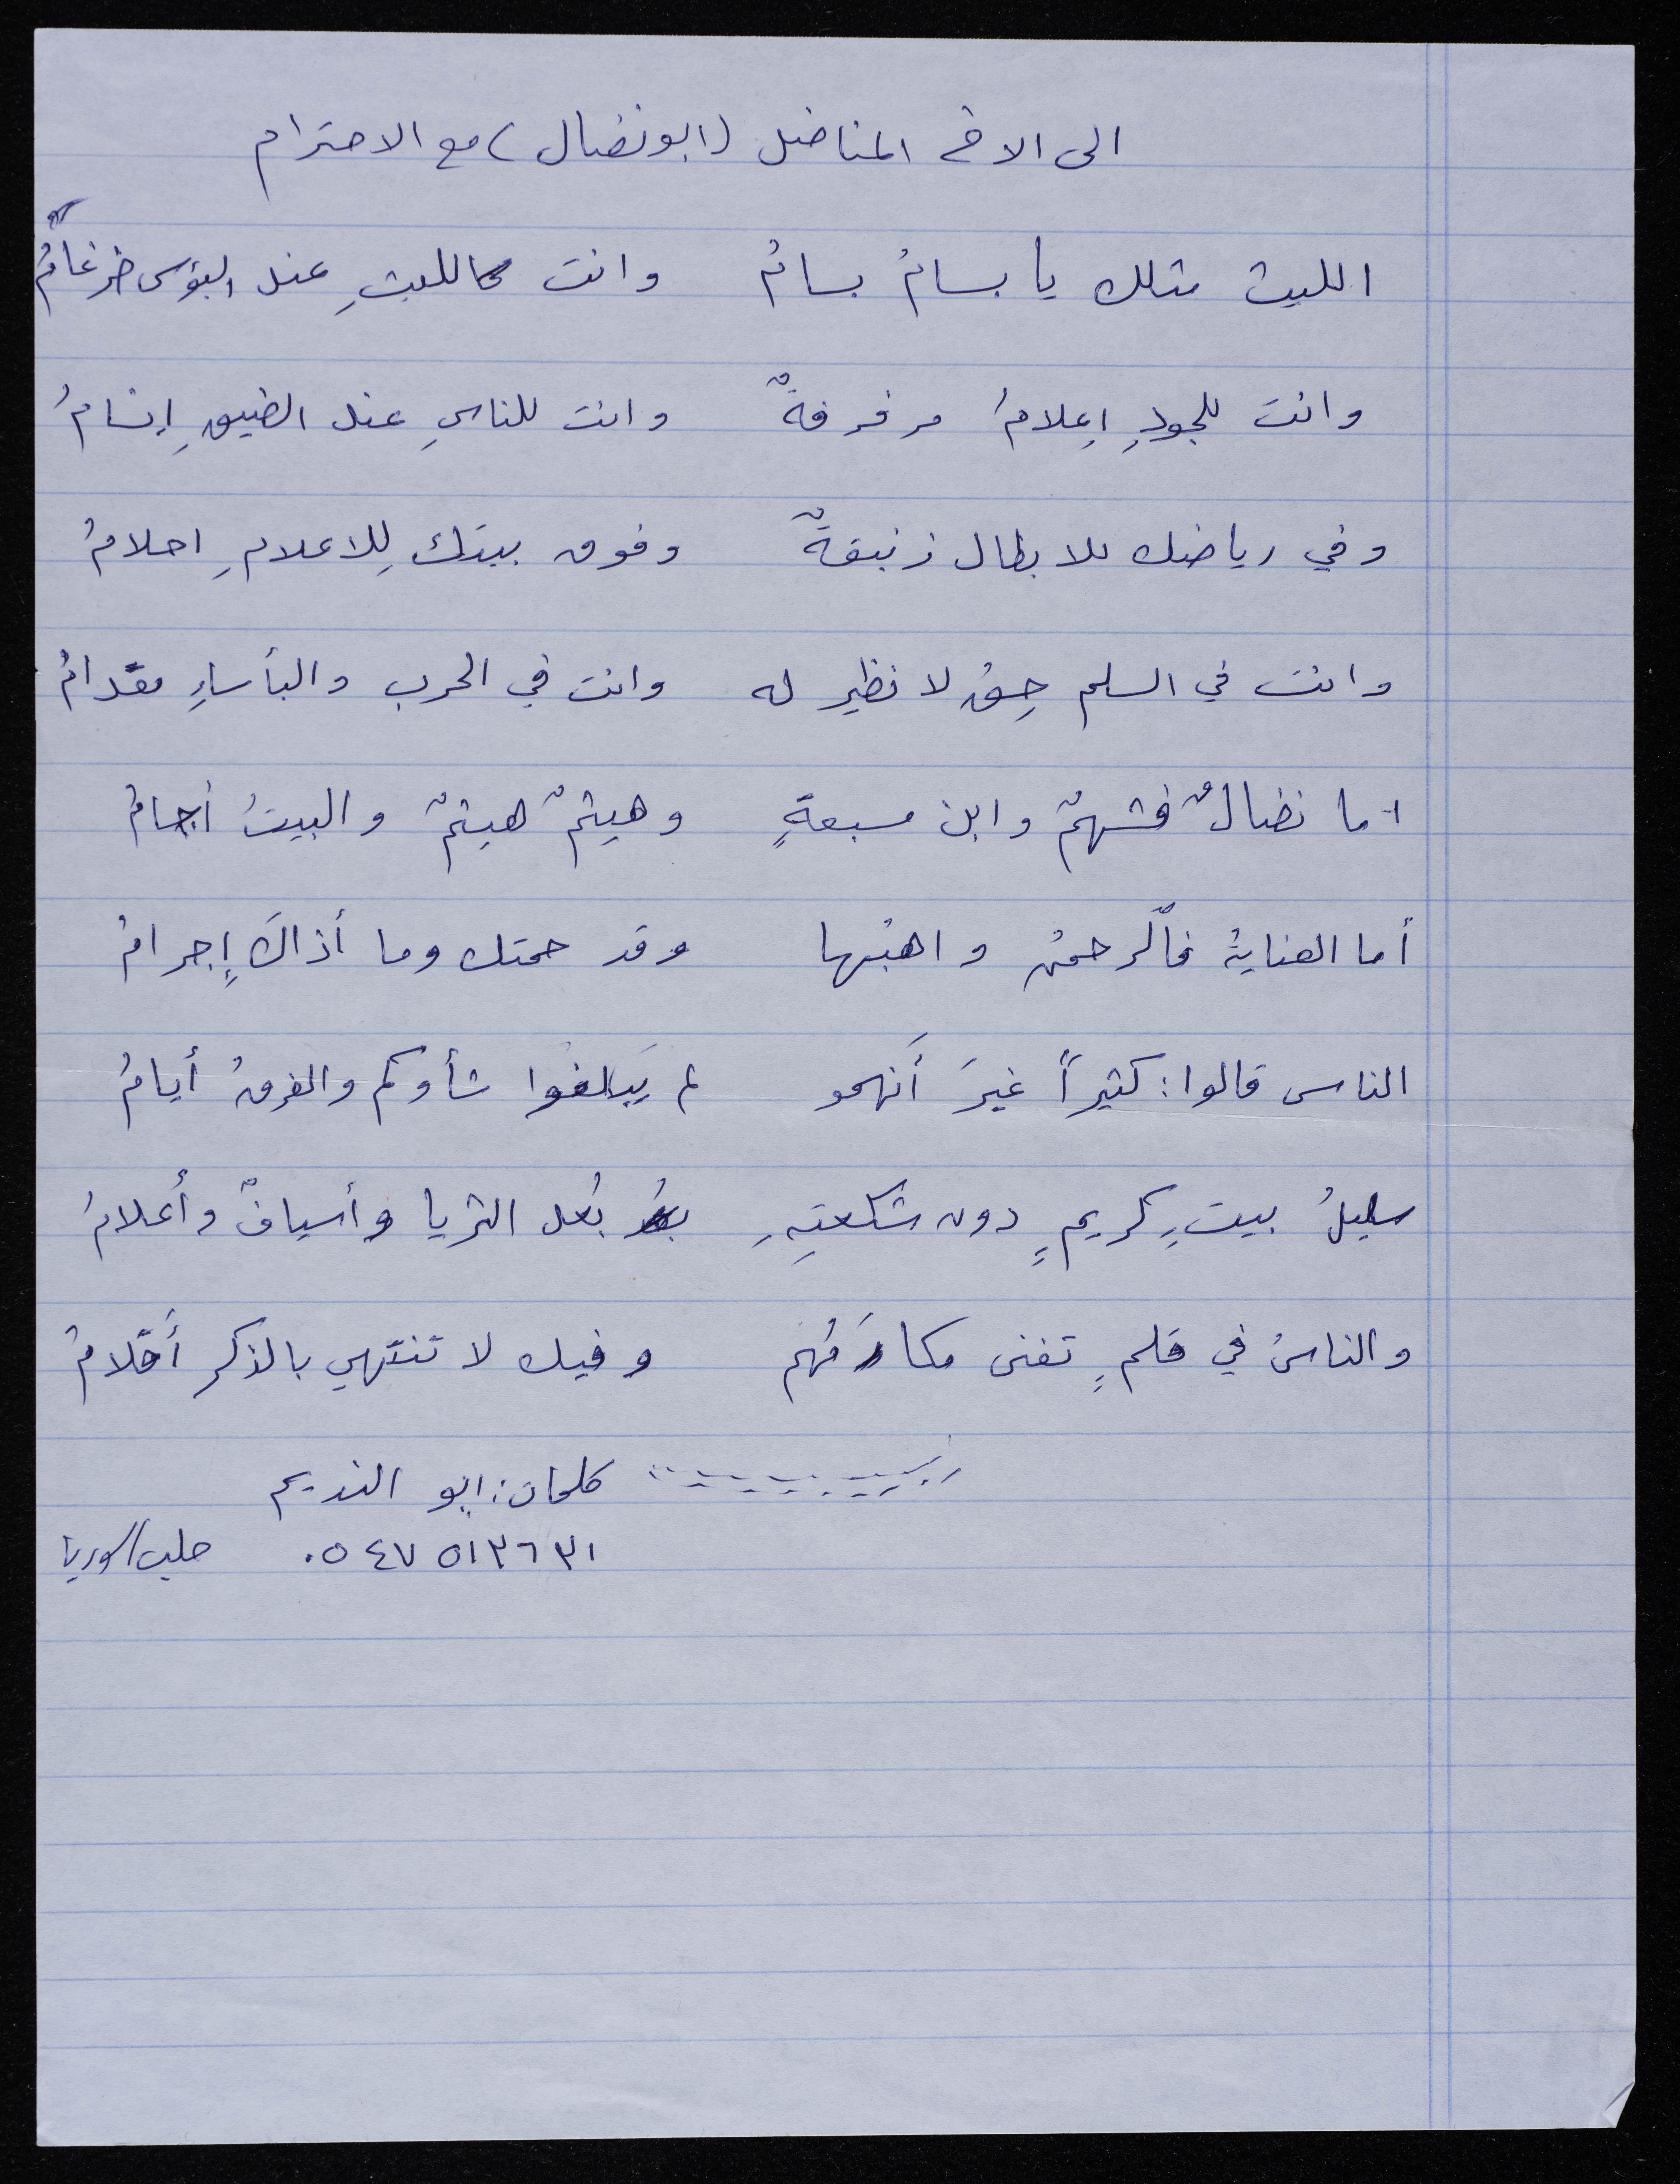 الى الاخ المناضل (ابو نضال) مع الاحترام
الليث مثلك يا بسامُ بسامُ وانت كالليثِ عند البؤسى ضرغامُ
وانت للجودِ اِعلامُ مرفرفةٌ وانت للناسِ عند الضيقِ إنسامُ
وفي رياضك للابطال زنبقةٌ وفوق بيتك لِلاعلامِ احلامُ
وانت في السلم لا نظير له وانت في الحرب والبأساءِ مقدامُ
اما نضالٌ فشهمٌ وابن مسبعةٍ وهيثمٌ هيثمٌ والبيتُ أجامُ
أما العنايةُ فالّرحمنُ واهبُها وقد حمتك وما أذاكَ إجرامُ
الناس قالوا: كثيراً غيرَ أنهمو لم يَبلغوا شأوكم والفرقُ أيامُ
سليلُ بيتِ كريمٍ دون شكعتِهِ بُعد الثريا وأسيافٌ وأعلامُ
والناسُ في قلمٍ تفنى مكارمُهم وفيك لا تنتهي بالذكر أقلامُ
كلمات: ابو النديم
٠٥٤٧ ٥١٣٦٣١ حلب/سوريا